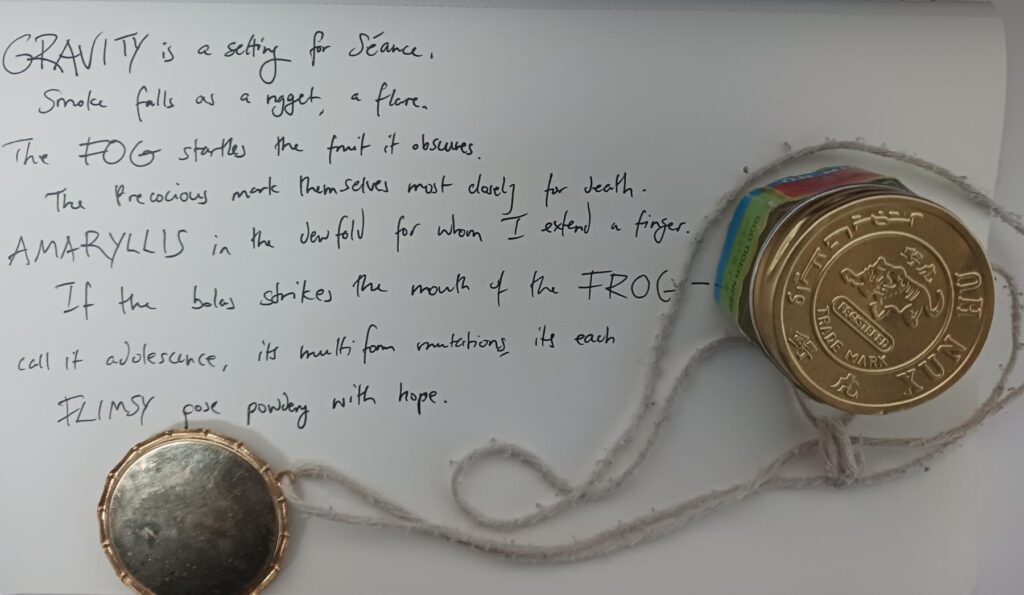 GRAVITY is a setting for Séance.
Smoke falls as a nugget, a flare.
The FOG startles the fruit it obscures.
The Precocious mark themselves most closely for death.
AMARYLLIS in the dewfold for whom I extend a finger.
If the bolas strikes the mouth of the FROG –
call it adolescence, its multiform mutations, its each
FLIMSY pose powdery with hope.
REGISTERED
TRADE MARK
HU
XUN